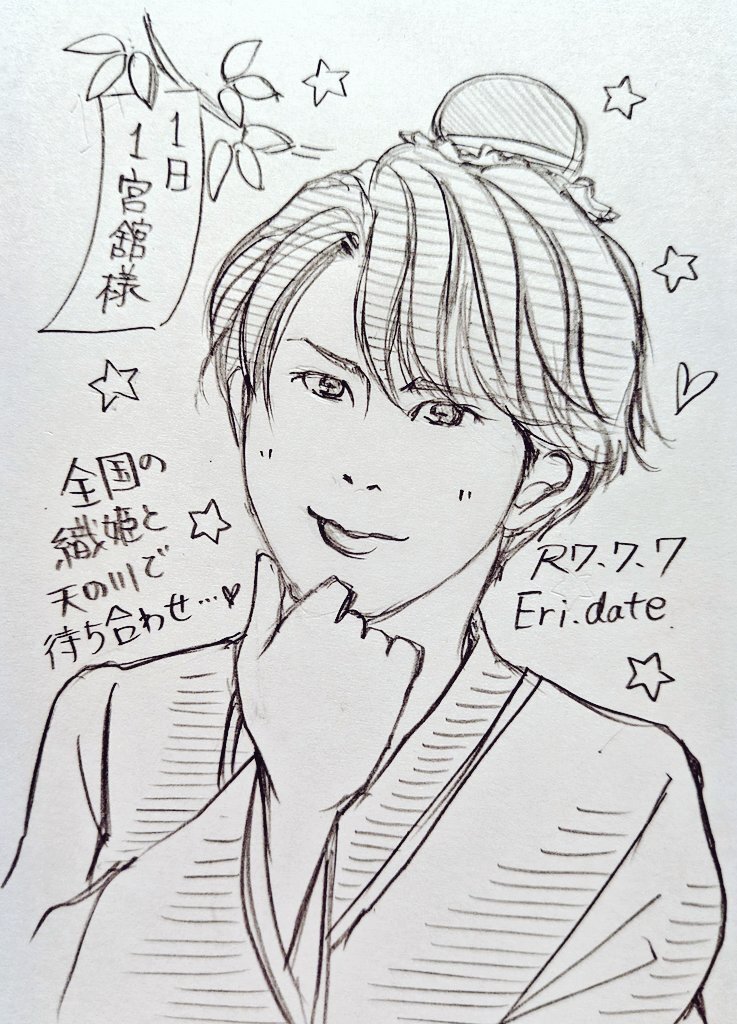 1日
1宮舘様
全国の
織姫と
天の川で
待ち合わせ…♡
R7.7.7
Eri.date